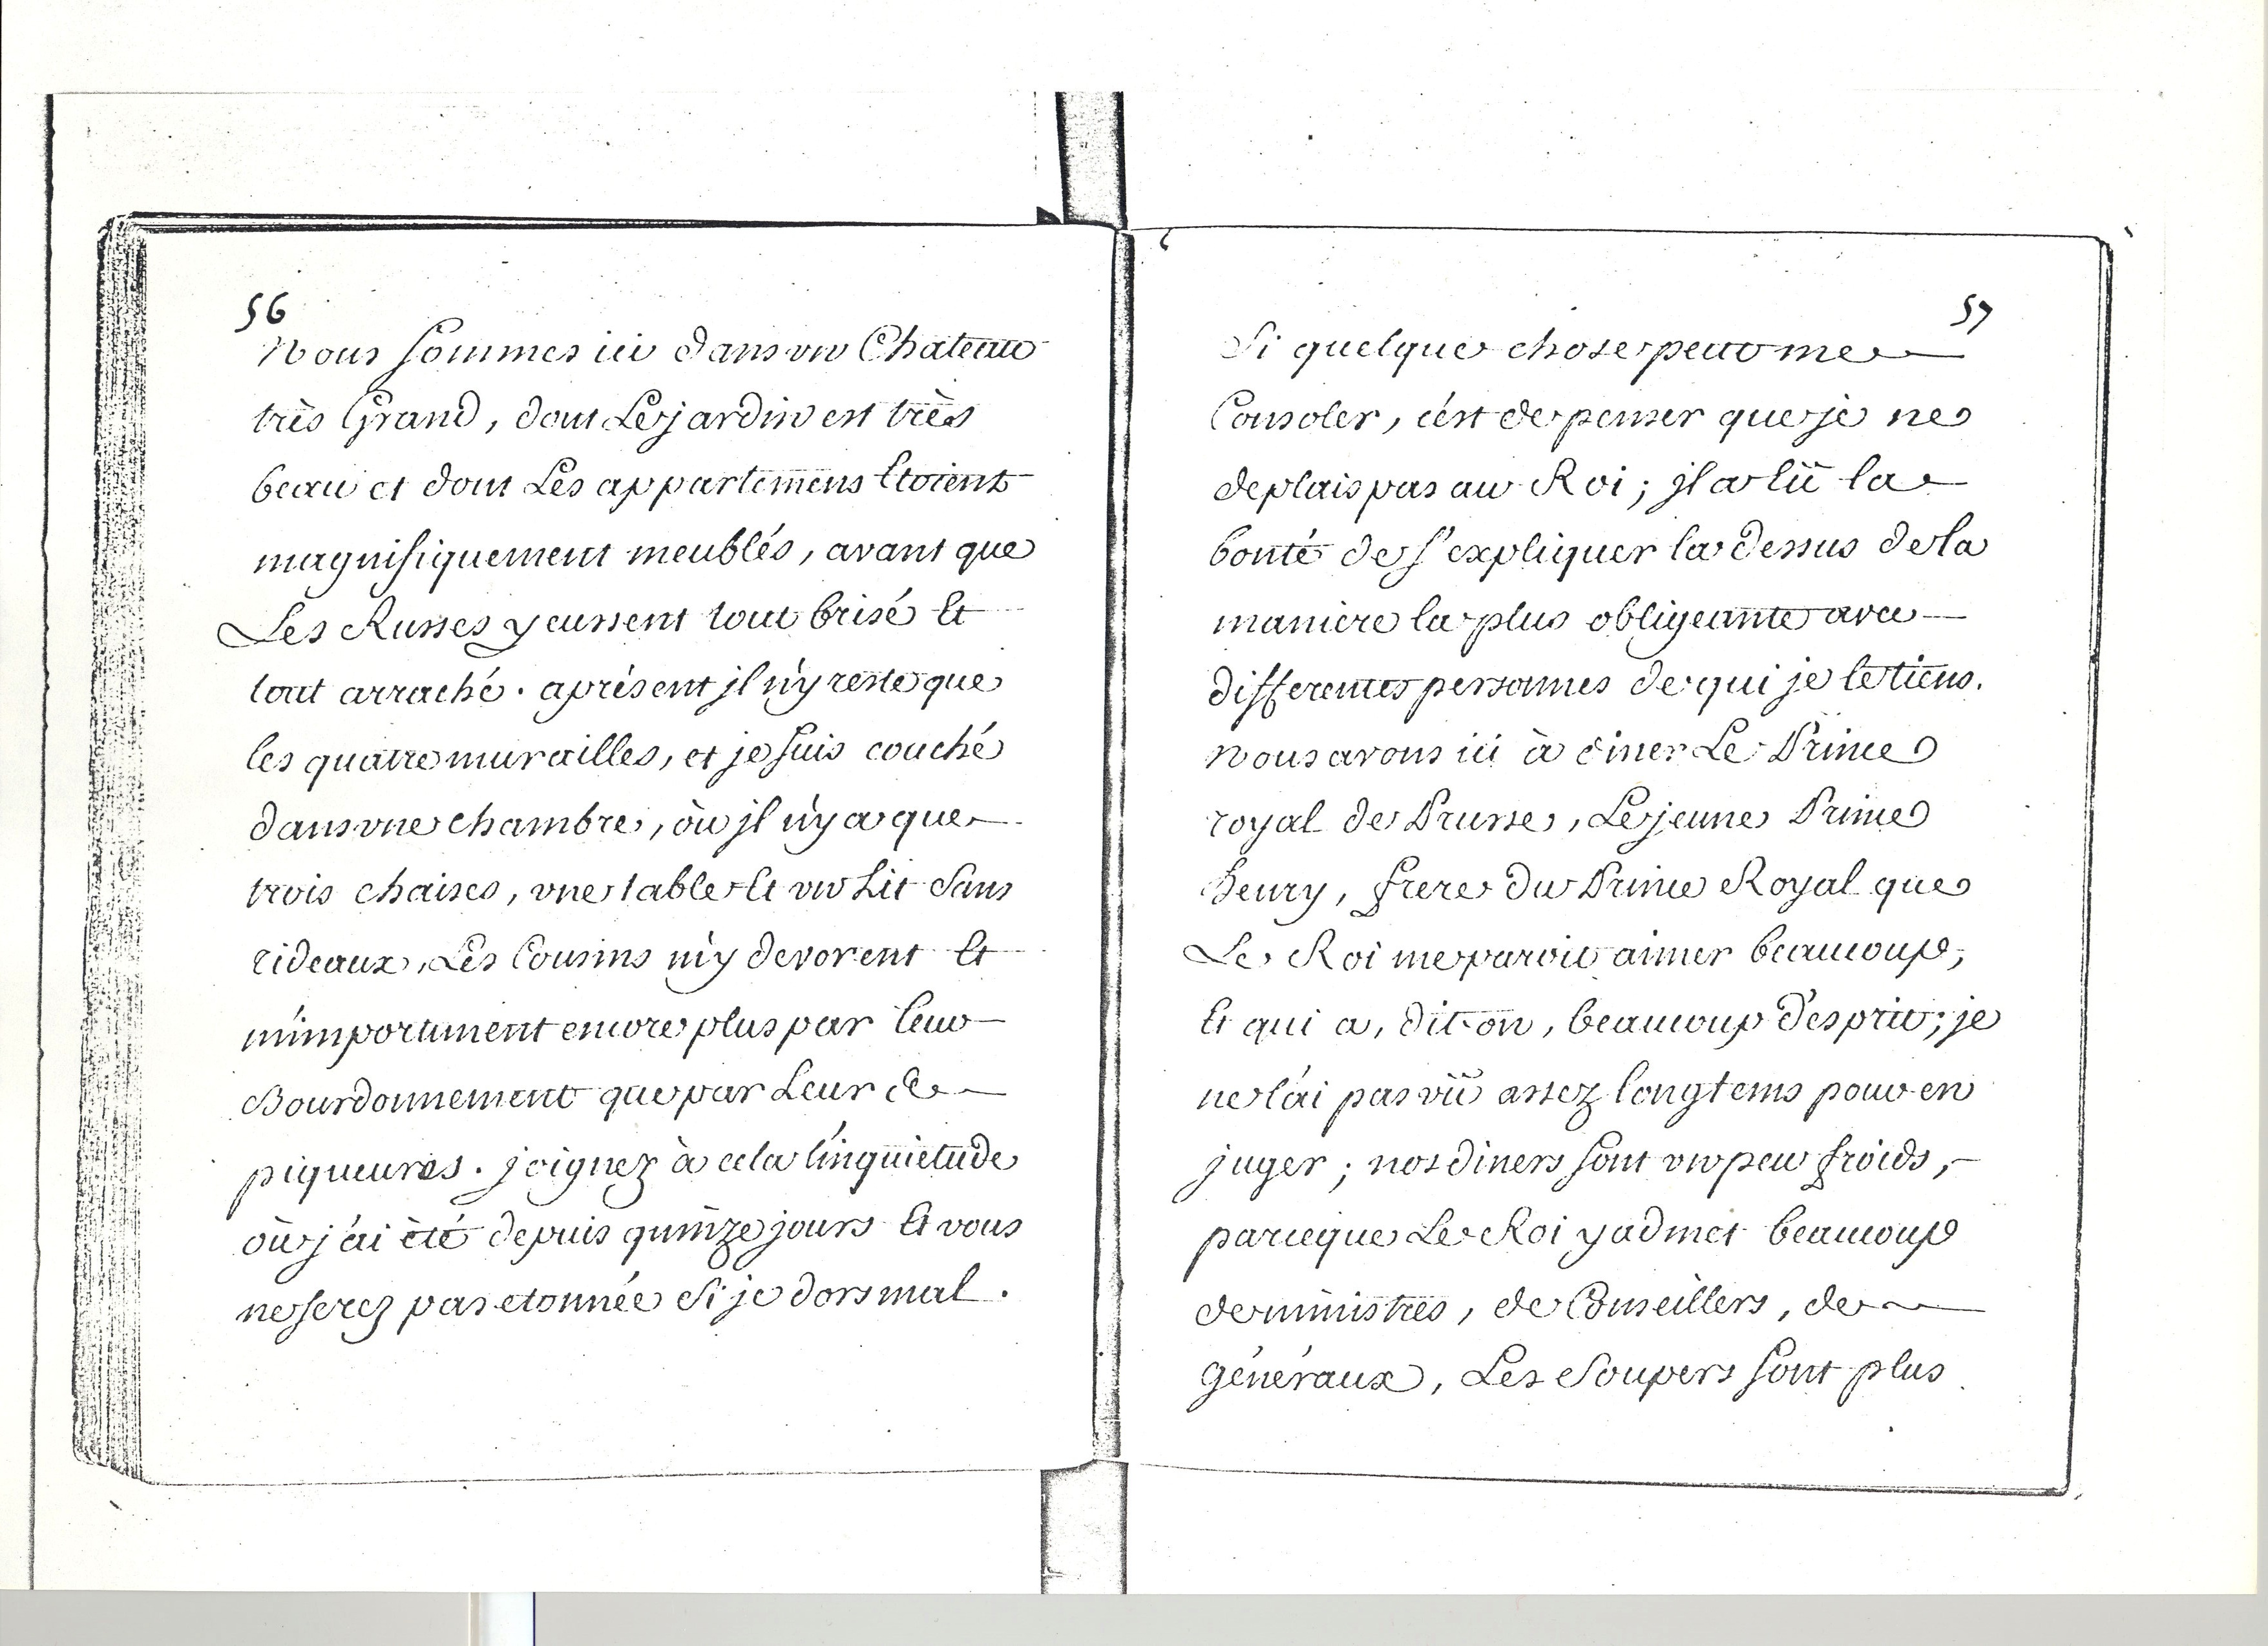 56
Nous sommes ici dans un Chateau
très Grand, dont Le jardin est très
beau et dont Les appartemens Etoient
magnifiquement meublés, avant que
Les Russes y eussent tout brisé Et
tout arraché. aprésent jl n'y reste que
les quatre murailles, et je suis couché
dans vne chambre, où jl n'y a que
trois chaises, vne table Et vn Lit sans
rideaux, Les Cousins m'y devorent Et
m'importunent encore plus par leur
Bourdonnement que par Leur de
piqueures. joignez à cela l'inquietude
où j'ai èté depuis quinze jours Et vous
ne serez pas etonnée si je dors mal.
57
Si quelque chose peut me
Consoler, c'est de penser que je ne
deplais pas au Roi; jl a eü la
bonté de s'expliquer la dessus de la
maniere la plus obligeante avec
differentes personnes de qui je le tiens.
Nous avons ici à diner Le Prince
royal de Prusse, Le jeune Prince
henry, frere du Prince Royal que
Le Roi me paroit aimer beaucoup,
Et qui a, dit-on, beaucoup d'esprit; je
ne l'ai pas vü assez longtems pour en
juger; nos diners sont vn peu froids,
parceque Le Roi y admet beaucoup
de ministres, de Conseillers, de
généraux, Les Soupers sont plus